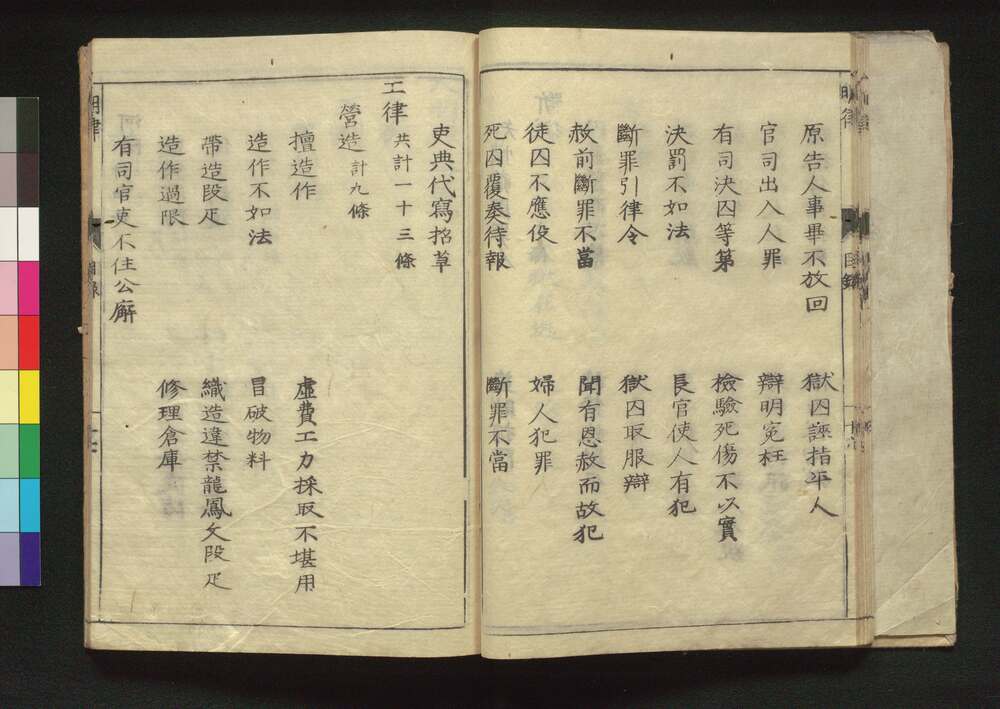 原告人事畢不放回
獄囚誣指平人
官司出入人罪
辯明冤枉
有司決囚等第
檢驗死傷不以實
決罰不如法
長官使人有犯
斷罪引律令
獄囚取服辯
赦前斷罪不當
聞有恩赦而故犯
徒囚不應役
婦人犯罪
死囚覆奏待報
斷罪不當
吏典代寫招草
工律 共計一十三條
營造 計九條
擅造作
虛費工力採取不堪用
造作不如法
冒破物料
帶造段疋
織造違禁龍鳳文段疋
造作過限
修理倉庫
有司官吏不住公廨
明律
目錄
明律
目錄